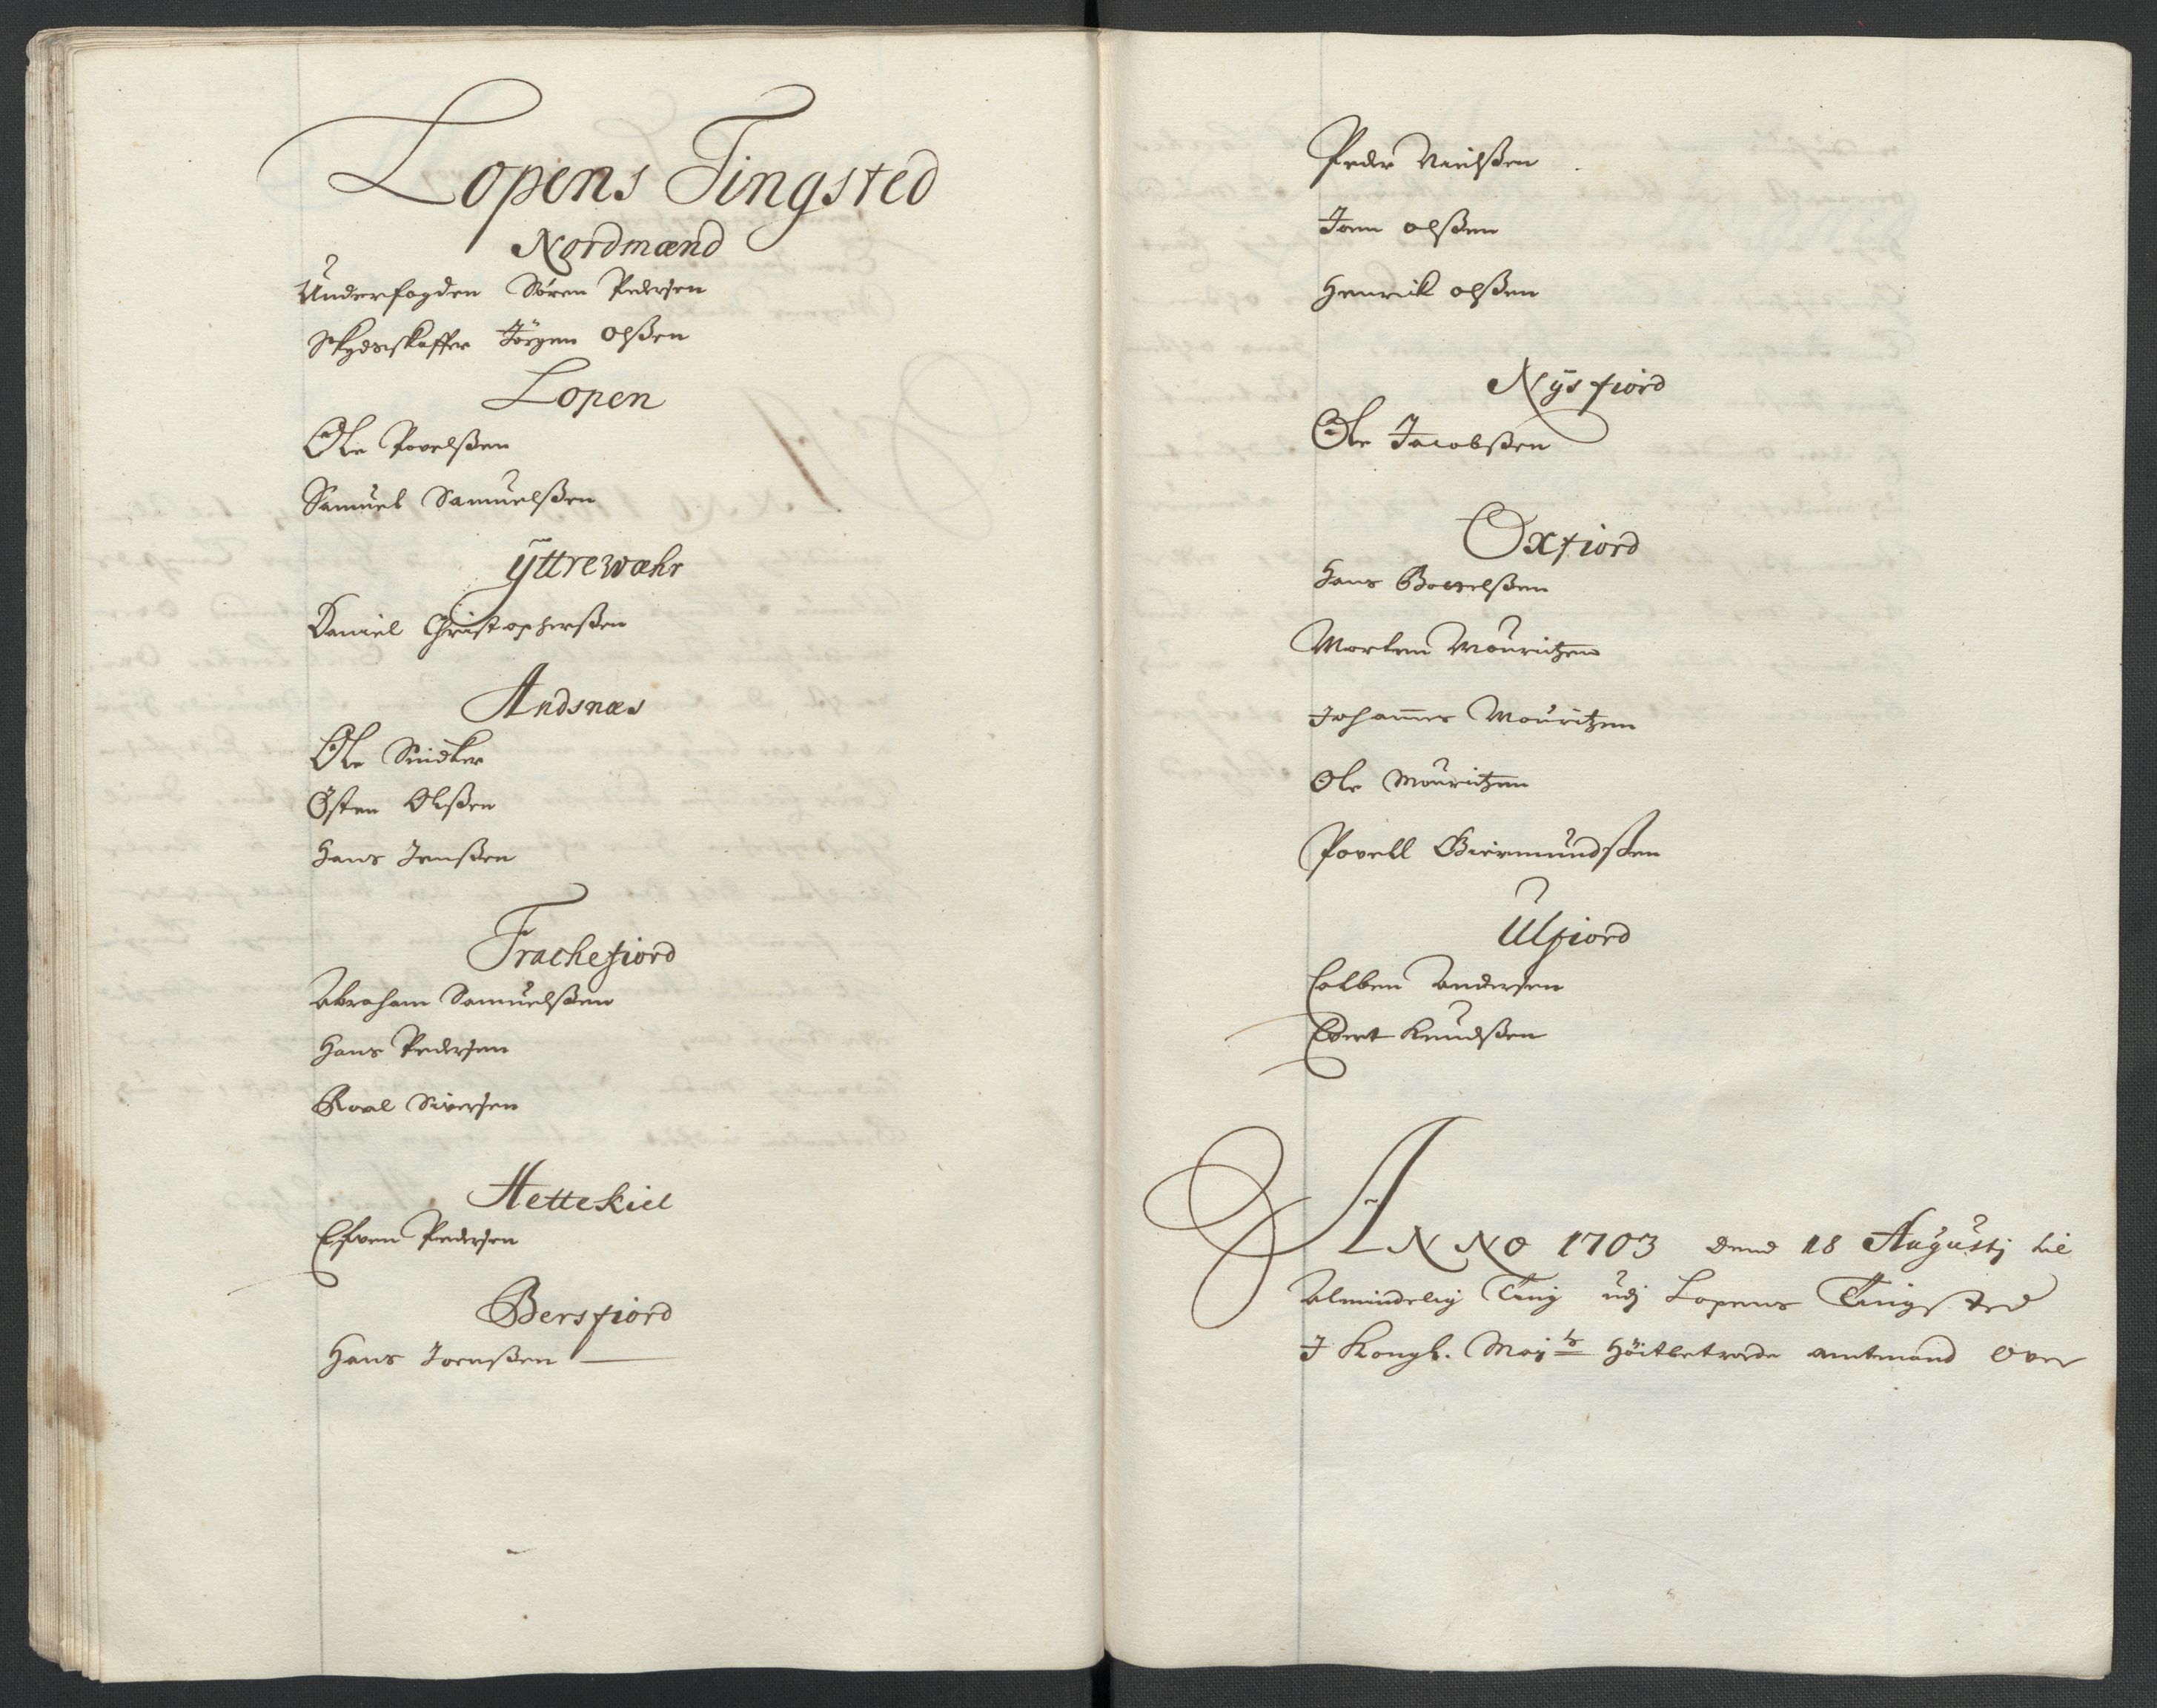 Lopens Tingsted
Nordmænd
Underfogden Sören Pedersen
Skydsskaffer Jörgen Olßen
Lopen
Ole Povelßen
Samuel Samuelßen
ÿttrewæhr
Daniel Christopherßen
Andsnæs
Ole Snidker
Östen Olßen
Hans Jenßen
Frachefiord
Abraham Samuelßen
Hans Pedersen
Roal Siversen
Hettekiel
Efven Pedersen
Bersfiord
Hans Joenßen
Peder Nielßen
Joen olßen
Henrik olßen
Nÿsfiord
Ole Jacobßen
Oxfiord
Hans
Morten Mouritzen
Johannes Mouritzen
Ole Mouritzen
Povell Giermundßen
Ulfiord
Colben Andersen
Evert Knudßen
ANNO 1703 dend 18 Augustj til
Almindelig Ting udj Lopens Tingsted
J Kongl. Mayts Höitbetroede Amtmand Over